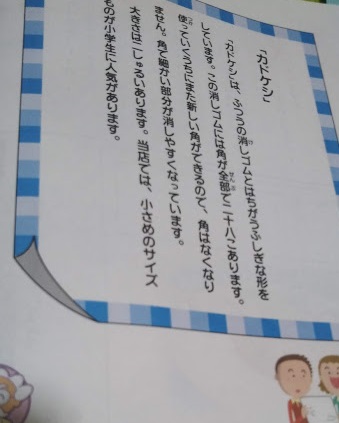 「カドケシ」
「カドケシ」は、ふつうの消しゴムとはちがうふしぎな形を
しています。この消しゴムには角が全部で二十八こあります。
使っていくうちにまた新しい角ができるので、角はなくなり
ません。角で細かい部分が消しやすくなっています。
大きさは二しゅるいあります。当店では、小さめのサイズ
ものが小学生に人気があります。